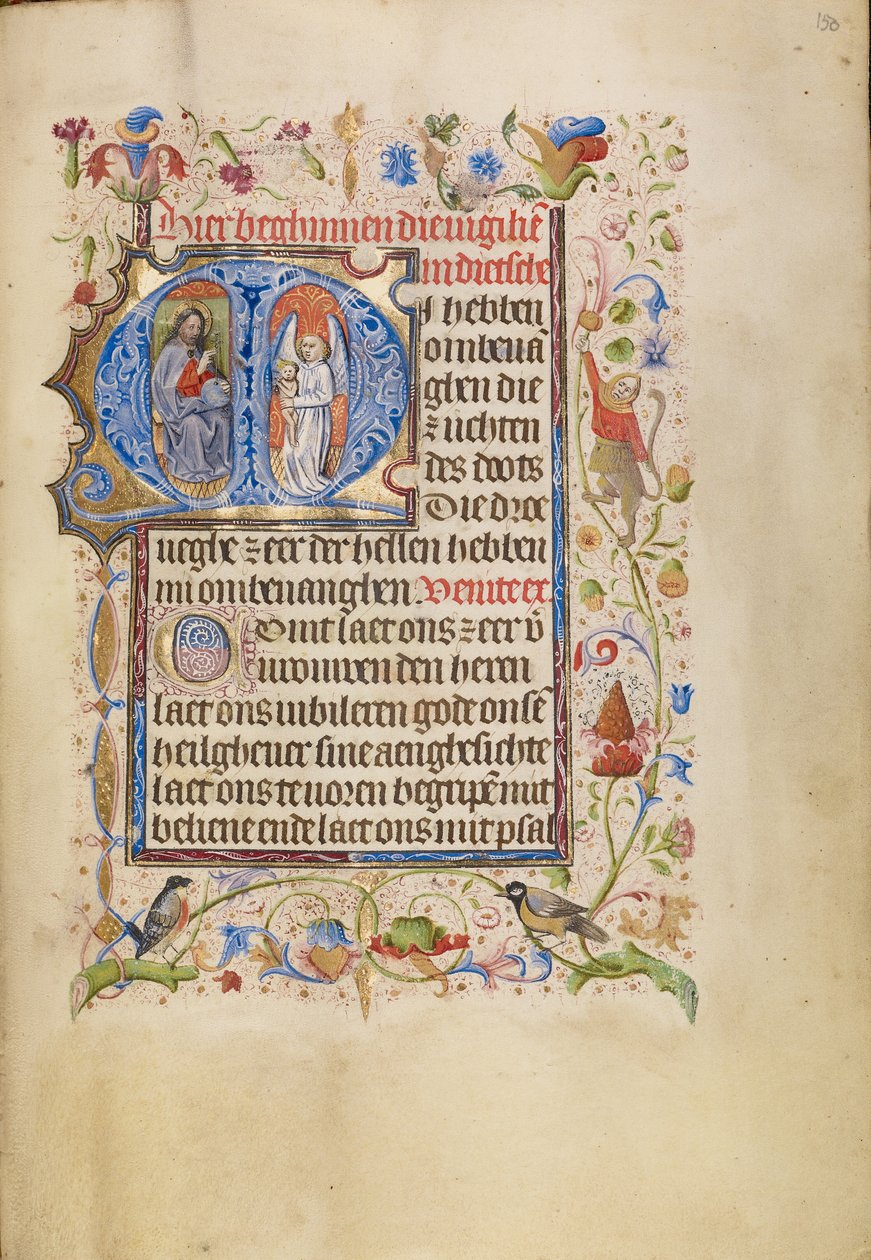 150
Hier beghinnen die vigiliē
in dietsche
Mi hebben
ombeuā
ghen die
zuchten
des doots
Die droe
ueghe zeer der hellen hebben
mi ombeuanghen. Venite ex.
Comt laet ons zeer v̄
urouwen den heren
laet ons iubileren gode onsē
heilgheuer sine aenghesichte
laet ons te uoren begripē mit
beliene ende laet ons mit psal